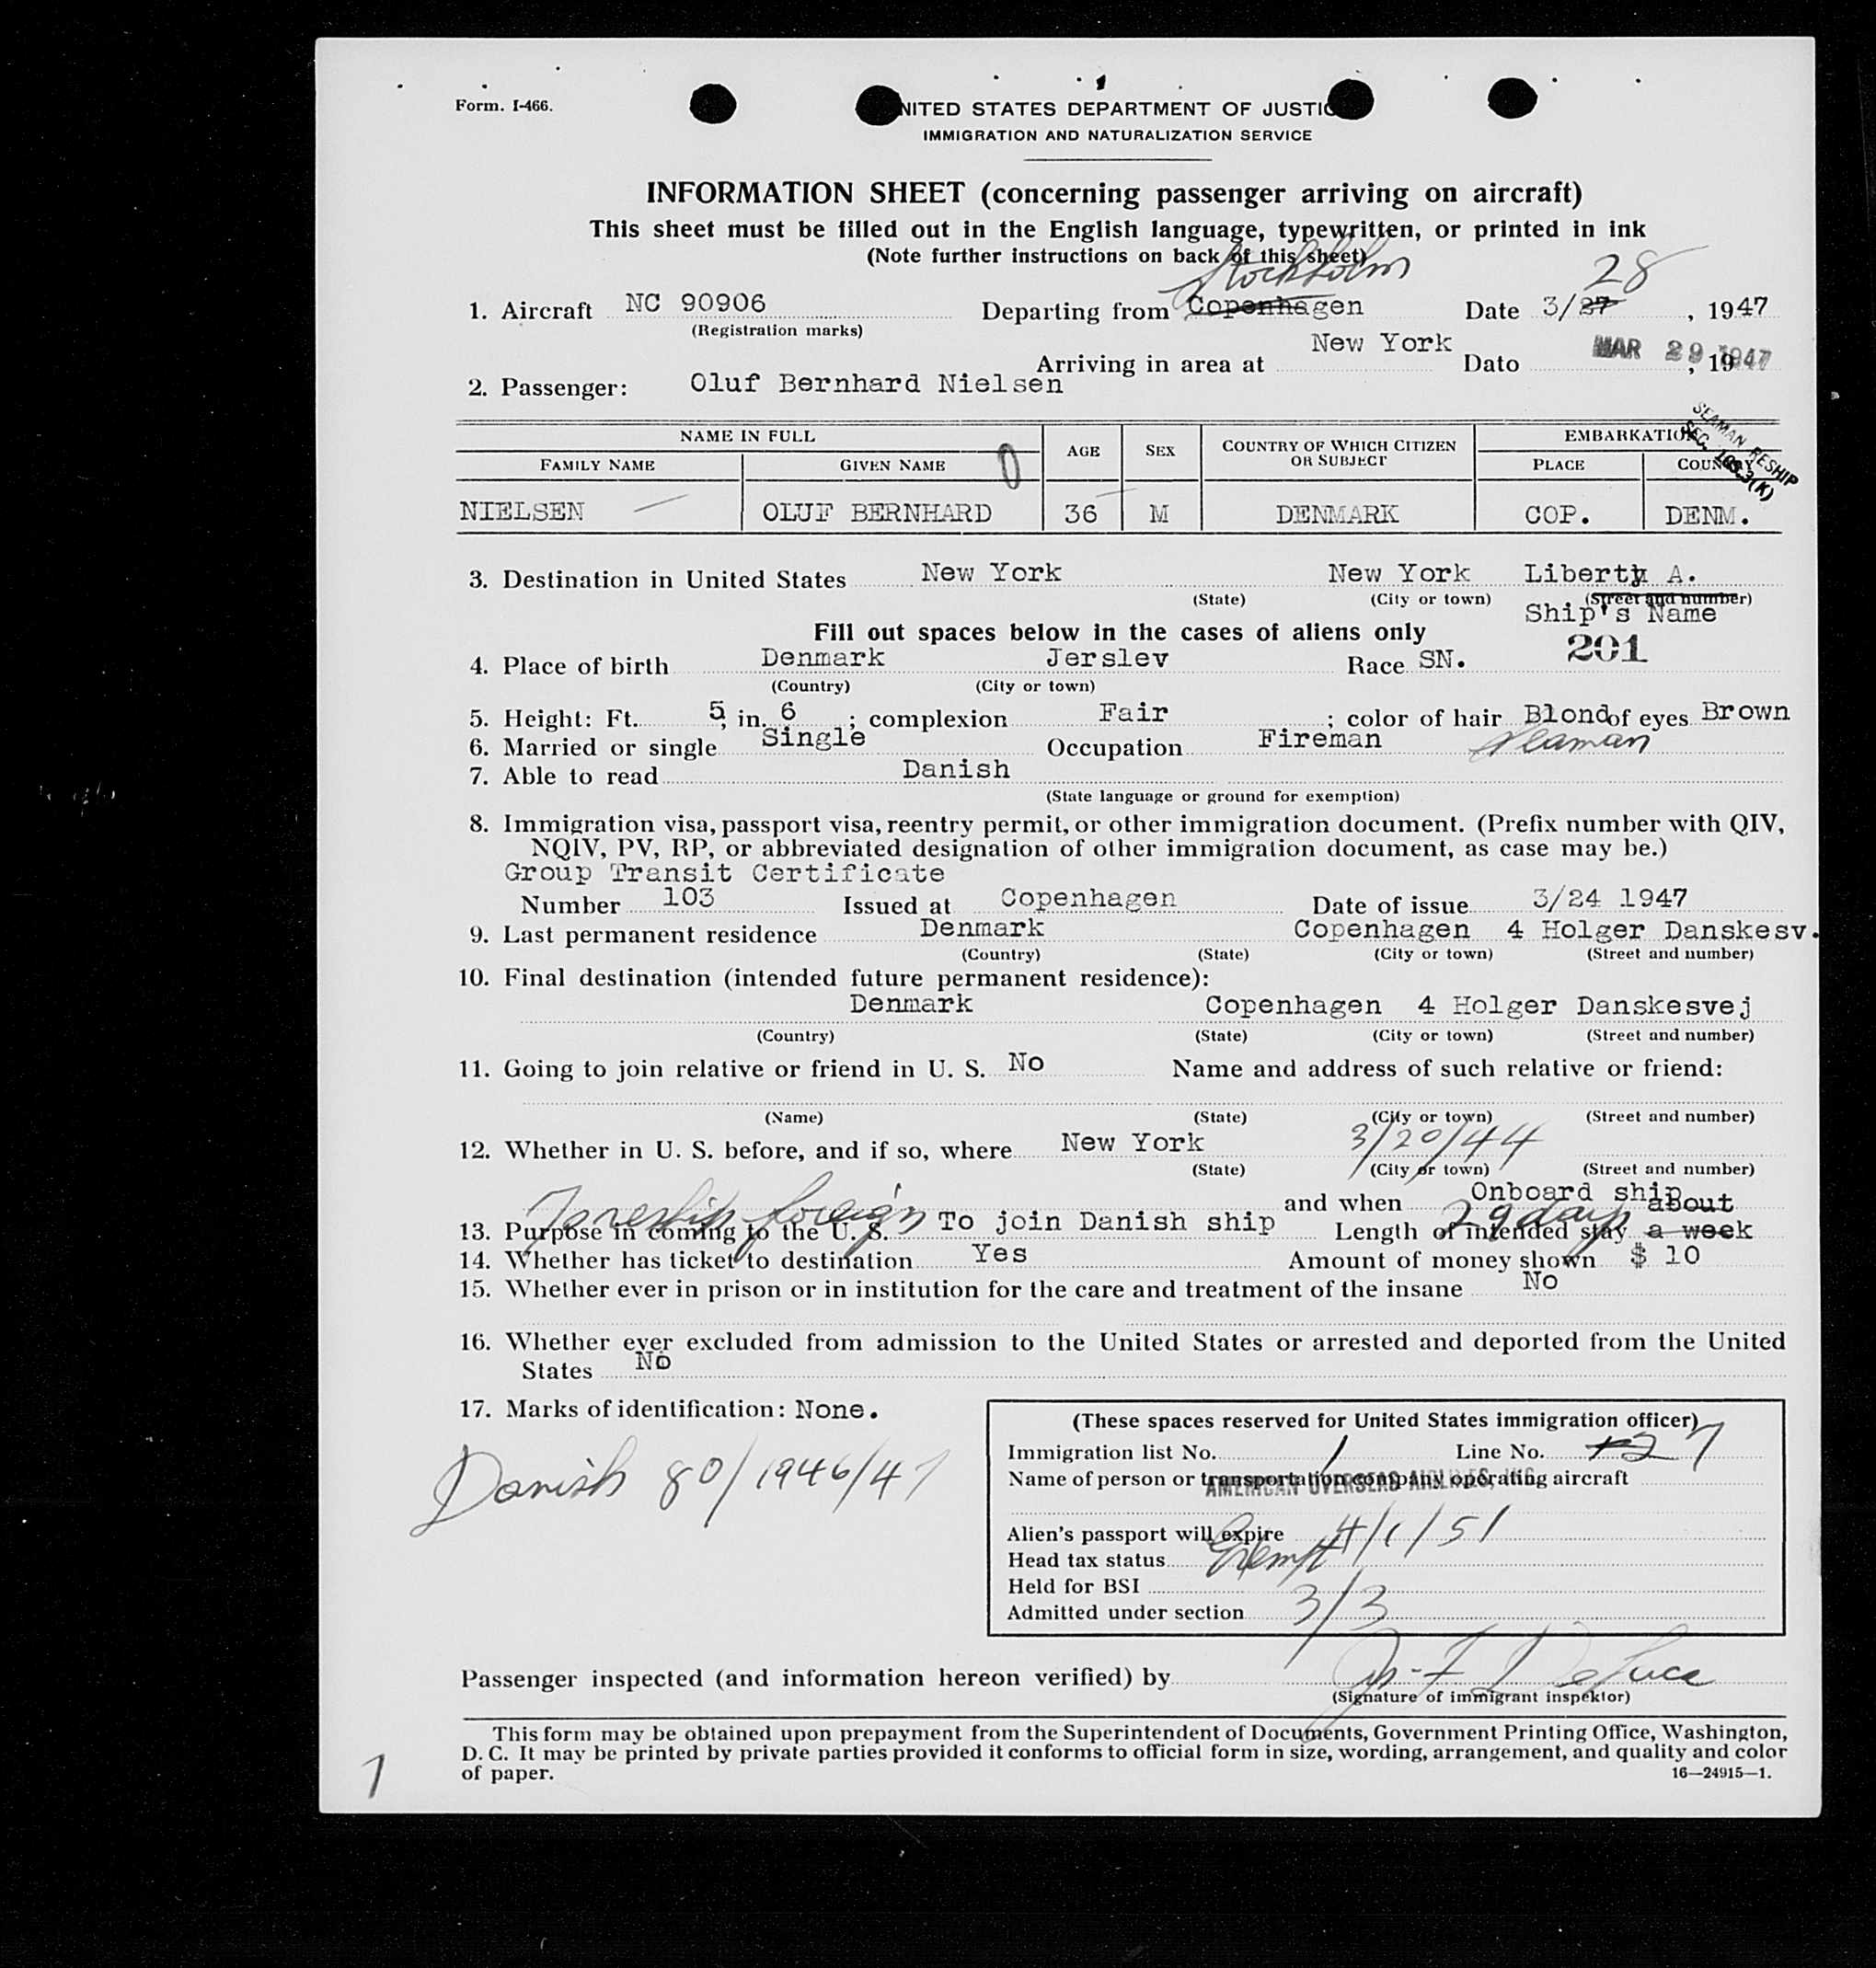 Form. I-466.
UNITED STATES DEPARTMENT OF JUSTIC
IMMIGRATION AND NATURALIZATION SERVICE
INFORMATION SHEET (concerning passenger arriving on aircraft)
This sheet must be filled out in the English language, typewritten, or printed in ink
(Note further instructions on back of this sheet)
Stockholm 28
1. Aircraft NC 90906 Departing from Copenhagen Date 3/27, 1947
(Registration marks)
Arriving in area at New York Dato MAR 29 1947, 19
2. Passenger: Oluf Bernhard Nielsen
SEAMAN RESHIP
SEC. 103.3(K)
NAME IN FULL AGE SEX COUNTRY OF WHICH CITIZEN OR SUBJECT EMBARKATION
FAMILY NAME GIVEN NAME PLACE COUNTRY
NIELSEN OLUF BERNHARD 36 M DENMARK COP. DENM.
3. Destination in United States New York New York Liberty A.
(State) (City or town) (Street and number)
Ship's Name
Fill out spaces below in the cases of aliens only
201
4. Place of birth Denmark Jerslev Race SN.
(Country) (City or town)
5. Height: Ft. 5, in. 6; complexion Fair; color of hair Blond of eyes Brown
6. Married or single Single Occupation Fireman Seaman
7. Able to read Danish
(State language or ground for exemption)
8. Immigration visa, passport visa, reentry permit, or other immigration document. (Prefix number with QIV,
NQIV, PV, RP, or abbreviated designation of other immigration document, as case may be.)
Group Transit Certificate
Number 103 Issued at Copenhagen Date of issue 3/24 1947
9. Last permanent residence Denmark Copenhagen 4 Holger Danskesv.
(Country) (State) (City or town) (Street and number)
10. Final destination (intended future permanent residence):
Denmark Copenhagen 4 Holger Danskesvej
(Country) (State) (City or town) (Street and number)
11. Going to join relative or friend in U. S. No Name and address of such relative or friend:
(Name) (State) (City or town) (Street and number)
12. Whether in U. S. before, and if so, where New York 3/20/44
(State) (City or town) (Street and number)
and when Onboard ship
To reship foreign 29 days about
13. Purpose in coming to the U. S. To join Danish ship Length of intended stay a week
14. Whether has ticket to destination Yes Amount of money shown $ 10
15. Whether ever in prison or in institution for the care and treatment of the insane No
16. Whether ever excluded from admission to the United States or arrested and deported from the United
States No
17. Marks of identification: None.
Danish 80/1946/47
(These spaces reserved for United States immigration officer)
Immigration list No. 1 Line No. 27
Name of person or transportation company operating aircraft
AMERICAN OVERSEAS AIRLINES, INC.
Alien's passport will expire 4/1/51
Head tax status Exempt
Held for BSI
Admitted under section 3/3
Passenger inspected (and information hereon verified) by F DeLuca
(Signature of immigrant inspektor)
This form may be obtained upon prepayment from the Superintendent of Documents, Government Printing Office, Washington,
D. C. It may be printed by private parties provided it conforms to official form in size, wording, arrangement, and quality and color
of paper.
16—24915—1.
1